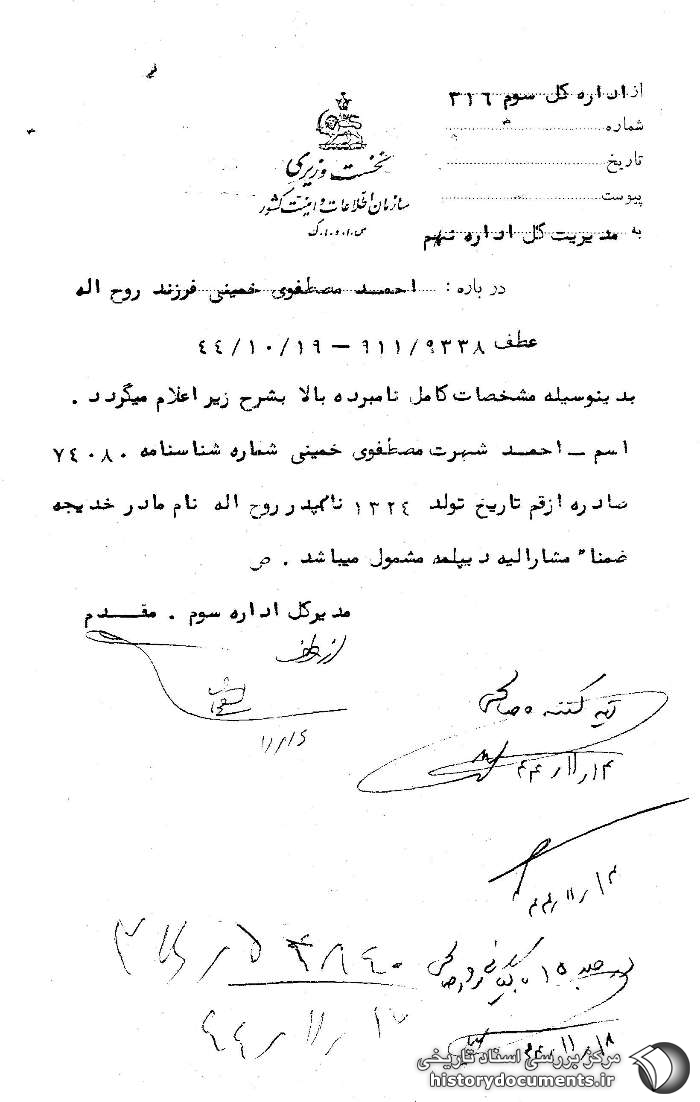 از اداره کل سوم ۳۱٦
شماره
تاریخ
پیوست
به مدیریت کل اداره نهم
نخست وزیری
سازمان اطلاعات و امنیت کشور
س.ا.و.ا.ک
درباره : احمد مصطفوی خمینی فرزند روح اله
عطف ۹۱۱/۹۳۳۸ – ٤٤/۱۰/۱۹
بدینوسیله مشخصات کامل نامبرده بالا بشرح زیر اعلام میگردد .
اسم – احمد شهرت مصطفوی خمینی شماره شناسنامه ۷٤۰۸۰
صادره ازقم تاریخ تولد ۱۳۲٤ نام پدر روح اله نام مادر خدیجه
ضمنا" مشارالیه دیپلمه مشمول میباشد .
مدیرکل اداره سوم . مقدم
۴۴٫۱۱٫۱۴
مرکز بررسی اسناد تاریخی
historydocuments.ir